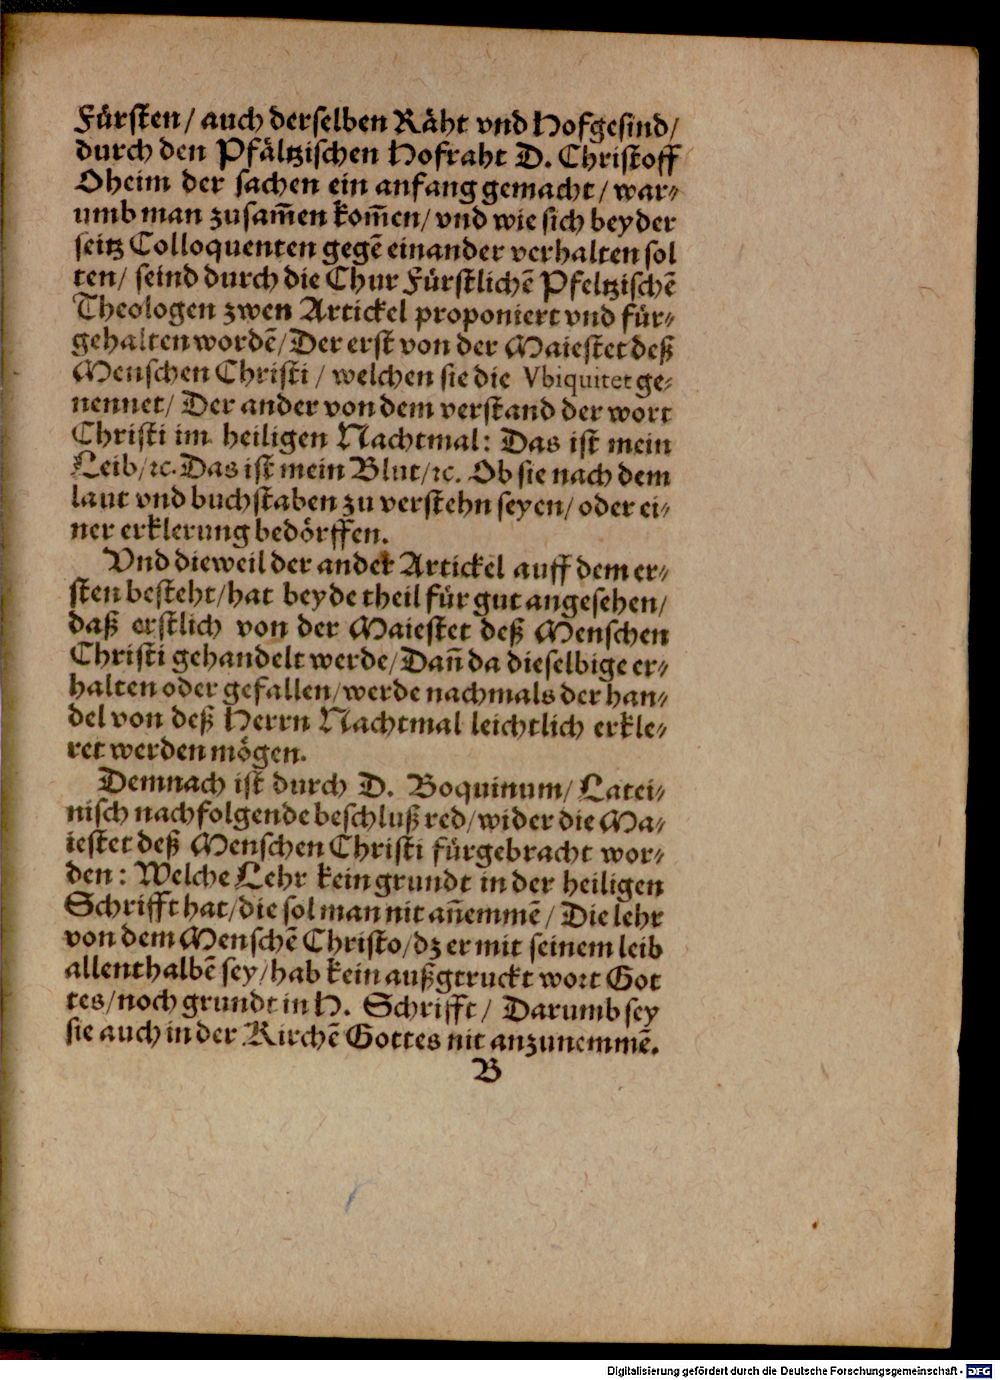 Fürsten/ auch derselben Räht vnd Hofgesind/
durch den Pfältzischen Hofraht D. Christoff
Oheim der sachen ein anfang gemacht/ war⸗
umb man zusam̃en kom̃en/ vnd wie sich beyder
seitz Colloquenten gegē einander verhalten sol
ten/ seind durch die Chur Fürstlichē Pfeltzischē
Theologen zwen Artickel proponiert vnd für⸗
gehalten wordē/ Der erst von der Maiestet deß
Menschen Christi / welchen sie die Vbiquitet ge⸗
nennet/ Der ander von dem verstand der wort
Christi im heiligen Nachtmal: Das ist mein
Leib/ ꝛc. Das ist mein Blut/ ꝛc. Ob sie nach dem
laut vnd buchstaben zu verstehn seyen/ oder ei⸗
ner erklerung bedörffen.
Vnd dieweil der ander Artickel auff dem er⸗
sten besteht/ hat beyde theil für gut angesehen/
daß erstlich von der Maiestet deß Menschen
Christi gehandelt werde/ Dañ da dieselbige er⸗
halten oder gefallen/ werde nachmals der han⸗
del von deß Herrn Nachtmal leichtlich erkle⸗
ret werden mögen.
Demnach ist durch D. Boquinum/ Latei⸗
nisch nachfolgende beschluß red/ wider die Ma⸗
iestet deß Menschen Christi fürgebracht wor⸗
den: Welche Lehr kein grundt in der heiligen
Schrifft hat/ die sol man nit añemmē/ Die lehr
von dem Menschē Christo/ dz er mit seinem leib
allenthalbē sey/ hab kein außgtruckt wort Got
tes/ noch grundt in H. Schrifft/ Darumb sey
sie auch in der Kirchē Gottes nit anzunemmē.
B
Digitalisierung gefördert durch die Deutsche Forschungsgemeinschaft - DFG